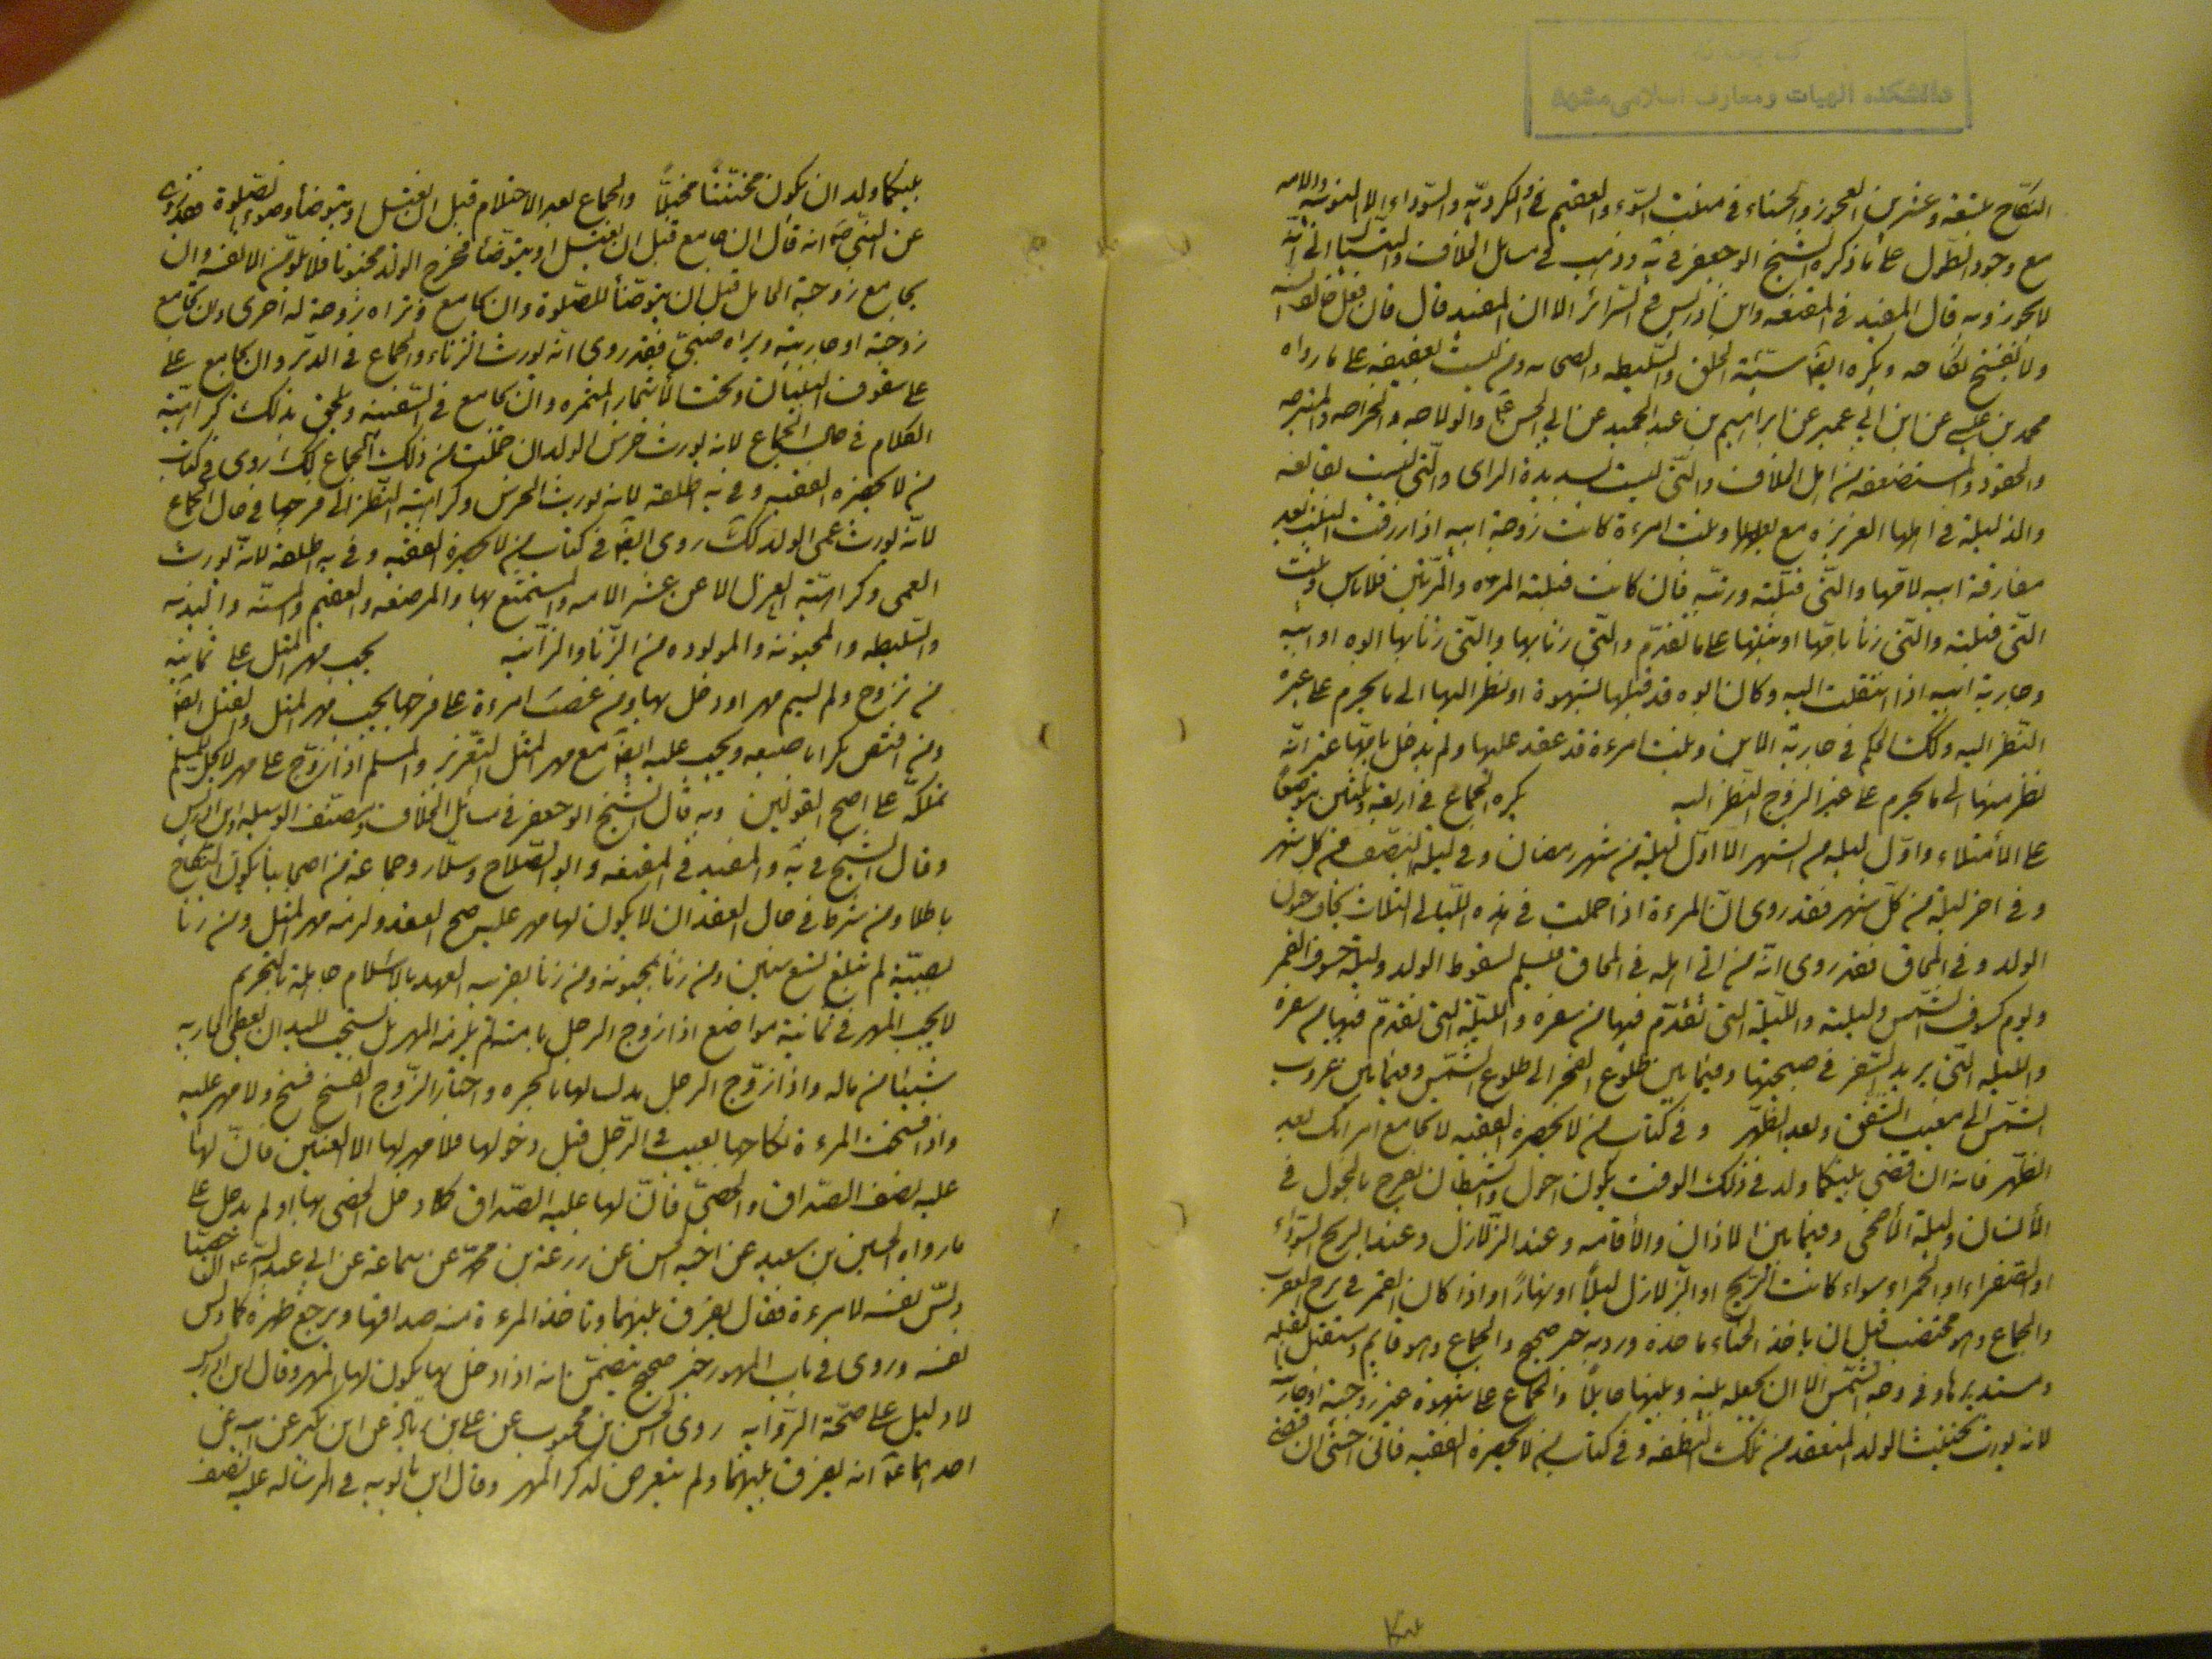 دانشکده الهیات و معارف اسلامی مشهد
النکاح بتسعة وعشرین العجوز والحسناء فی منبت السوء والعقیم والکردیة والسوداء الا النوبیة والامة
مع وجود الطول علی ما ذکره الشیخ ابو جعفر فی یه وذهب فی مسائل الخلاف والتبیان الی انه
لا یجوز وبه قال المفید فی المقنعه وابن ادریس فی السرائر الا ان المفید قال فان فعل خالف السنة
ولا ینفسخ نکاحه ویکره ایضا سیئة الخلق والسلیطه والصخابه ومن لیست بعفیفه علی ما رواه
محمد بن عیسی عن ابن ابی عمیر عن ابراهیم بن عبد الحمید عن ابی الحسن ع والولاجه والخراجه
والحقود والمستضعفه من اهل الخلاف والتی لیست بسدیدة الرای والتی لیست بقانعه
والذلیلة فی اهلها العزیزه مع بعلها وبنت امرءة کانت زوجة ابیه اذا رزقت البنت بعد
مفارقة ابیه لامها والتی قبلته وربته فان کانت قبلته المرءه ولم تربه فلا باس وبنت
التی قبلته والتی زنا بامها او بنتها علی ما تقدم والتی زنا بها والتی زنا بها ابوه او ابنه
وجاریة ابیه اذا انتقلت الیه وکان ابوه قد قبلها بشهوة او نظر الیها الی ما یحرم علی غیره
النظر الیه وکذلک الحکم فی جاریة الابن وبنت امرءة قد عقد علیها ولم یدخل بامها غیر انه
نظر منها الی ما یحرم علی غیر الزوج النظر الیه یکره الجماع فی اربعة وثلثین موضعا
علی الامتلاء واول لیلة من الشهر الا اول لیلة من شهر رمضان وفی لیلة النصف من کل شهر
وفی اخر لیلة من کل شهر فقد روی ان المرءة اذا حملت فی هذه اللیالی الثلاث یخاف جنون
الولد وفی المحاق فقد روی انه من اتی اهله فی المحاق فلیسلم لسقوط الولد ولیلة خسوف القمر
ویوم کسوف الشمس ولیلته واللیلة التی تقدم فیها من سفره واللیلة التی تقدم فیها من سفره
واللیله التی یرید السفر فی صبیحتها وفیما بین طلوع الفجر الی طلوع الشمس وفیما بین غروب
الشمس الی مغیب الشفق وبعد الظهر وفی کتاب من لا یحضره الفقیه لا تجامع امراتک بعد
الظهر فانه ان قضی بینکما ولد فی ذلک الوقت یکون احول والشیطان یفرح بالحول فی
الانسان ولیلة الاضحی وفیما بین الاذان والاقامه وعند الزلازل وعند الریح السوداء
او الصفراء او الحمراء سواء کانت الریح او الزلازل لیلا او نهارا او اذا کان القمر فی برج العقرب
والجماع وهو مختضب قبل ان یاخذ الحناء ماخذه ورد به خبر صحیح والجماع وهو قایم ومستقبل القبله
ومستدبرها وفی وجه الشمس الا ان یجعل بینه وبینها حایلا والجماع علی شهوة غیر زوجته او جاریته
لانه یورث تخنیث الولد المنعقد من تلک النطفه وفی کتاب من لا یحضره الفقیه فانی اخشی ان قضی
بینکما ولد ان یکون مخنثا مخبلا والجماع بعد الاحتلام قبل ان یغتسل او یتوضأ وضوء الصلوة فقد روی
عن النبی ص انه قال ان جامع قبل ان یغتسل او یتوضأ فخرج الولد مجنونا فلا یلومن الا نفسه وان
یجامع زوجة الحامل قبل ان یتوضأ للصلوة وان یجامع وتراه زوجة له اخری وان یجامع
زوجته او جاریته ویراه صبی فقد روی انه یورث الزناء والجماع فی الدبر وان یجامع علی
علی سقوف البنیان وتحت الاشجار المثمره وان یجامع فی السفینه ویلحق بذلک کراهیة
الکلام فی حال الجماع لانه یورث خرس الولد ان حملت من ذلک الجماع کذلک روی فی کتاب
من لا یحضره الفقیه وفی یه اطلقه لانه یورث الخرس وکراهیة النظر الی فرجها فی حال الجماع
لانه یورث عمی الولد کذلک روی ایضا فی کتاب من لا یحضره الفقیه وفی یه اطلقه لانه یورث
العمی وکراهیة العزل الا عن عشر الامه والمستمتع بها والمرضعه والعقیم والمسنه والبذیه
والسلیطه والمجنونه والمولوده من الزنا والزانیه یجب مهر المثل علی ثمانیه
من تزوج ولم یسم مهر اودخل بها ومن غصب امرءة علی فرجها یجب مهر المثل والقتل ایضا
ومن افتض بکرا باصبعه ویجب علیه ایضا مع مهر المثل التعزیر والمسلم اذا تزوج علی مهر لا یحل للمسلم
تملکه علی اصح القولین وبه قال الشیخ ابو جعفر فی مسائل الخلاف ومصنف الوسیله وابن ادریس
وقال الشیخ فی یه والمفید فی المقنعه وابو الصلاح وسلار وجماعه من اصحابنا یکون النکاح
باطلا ومن شرط فی حال العقد ان لا یکون لها مهر علیه صح العقد ولزمه مهر المثل ومن زنا
بصبیة لم تبلغ تسع سنین ومن زنا بمجنونه ومن زنا بقریب العهد بالاسلام جاهلة بالتحریم
لا یجب المهر فی ثمانیة مواضع اذا زوج الرجل بامته لم یلزمه المهر بل یستحب للسید ان یعطی الجاریه
شیئا من ماله واذا تزوج الرجل واختار الزوج الفسخ فسخ ولا مهر علیه
واذا فسخت المرءة نکاحها بعیب فی الرجل قبل دخولها فلا مهر لها الا العنین فان لها
علیه نصف الصداق والخصی فان لها علیه الصداق کملا دخل الخصی بها او لم یدخل علی
ما رواه الحسین بن سعید عن اخیه الحسن عن زرعة بن محمد عن سماعة عن ابی عبد الله ع ان خصیا
دلس نفسه لامرءة فقال یفرق بینهما وتاخذ المرءة منه صداقها ویوجع ظهره کما دلس
نفسه وروی فی باب المهور خبر صحیح یتضمن انه اذا دخل بها یکون لها المهر وقال ابن ادریس
لا دلیل علی صحة الروایه روی الحسن بن محبوب عن علی بن رئاب عن ابن بکیر عن ابیه عن
احدهما ع انه یفرق بینهما ولم یتعرض لذکر المهر وقال ابن بابویه فی الرساله علیه نصف